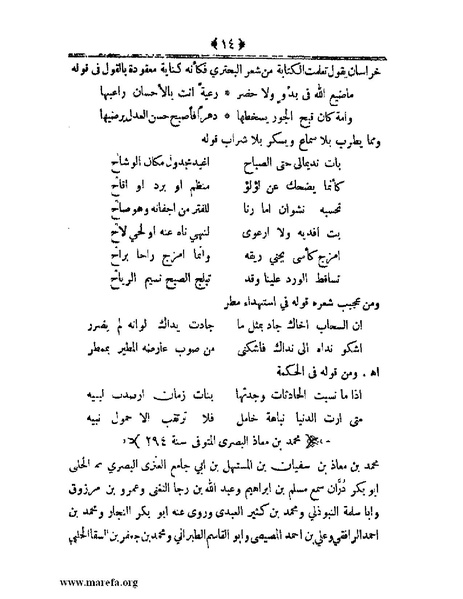 ﴿ ١٤ ﴾
خراسان يقول تعلمت الكتابة من شعر البحتري فكأنه كتابة معقودة بالقول فى قوله
ماضيع الله فى بدو ولا حضر * رعية انت بالأحسان راعيها
وامة كان قبح الجور يسخطها * دهراً فأصبح حسن العدل يرضيها
ومما يطرب بلا سماع ويسكر بلا شراب قوله
بات نديمالى حتى الصباح اغيد مجدول مكان الوشاح
كأنما يضحك عن لؤلؤ منظم او برد او اقاح
تحسبه نشوان اما رنا للفتر من اجفانه وهو صاح
بت افديه ولا ارعوى لنهي ناه عنه او لحي لاح
امزج كأسى بجنى ريقه وانما امزج راحا براح
تساقط الورد علينا وقد تبلج الصبح نسيم الرياح
ومن عجيب شعره قوله في استهداء مطر
ان السحاب اخاك جاد بمثل ما جادت يداك لو انه لم يضرر
اشكو نداه الى نداك فاشكنى من صوب عارضه المطير بممطر
اه . ومن قوله في الحكمة
اذا ما نسبت الحادثات وجدتها بنات زمان ارصدت لبنيه
متى ارت الدنيا نباهة خامل فلا ترتقب الا خمول نبيه
محمد بن معاذ البصرى المتوفى سنة ٢٩٤
محمد بن معاذ بن سفيان بن المستهل بن ابي جامع العنزى البصري ثم الحلبى
ابو بكر دُرَّان سمع مسلم بن ابراهيم وعبد الله بن رجا الغنى وعمرو بن مرزوق
وابا سلمة التبوذلي ومحمد بن كثير العبدى وروى عنه ابو بكر النجار ومحمد بن
احمد الرافقي وعلي بن احمد المصيصى وابو القاسم الطبراني ومحمد بن جعفر بن السقا الحلبى
www.marefa.org